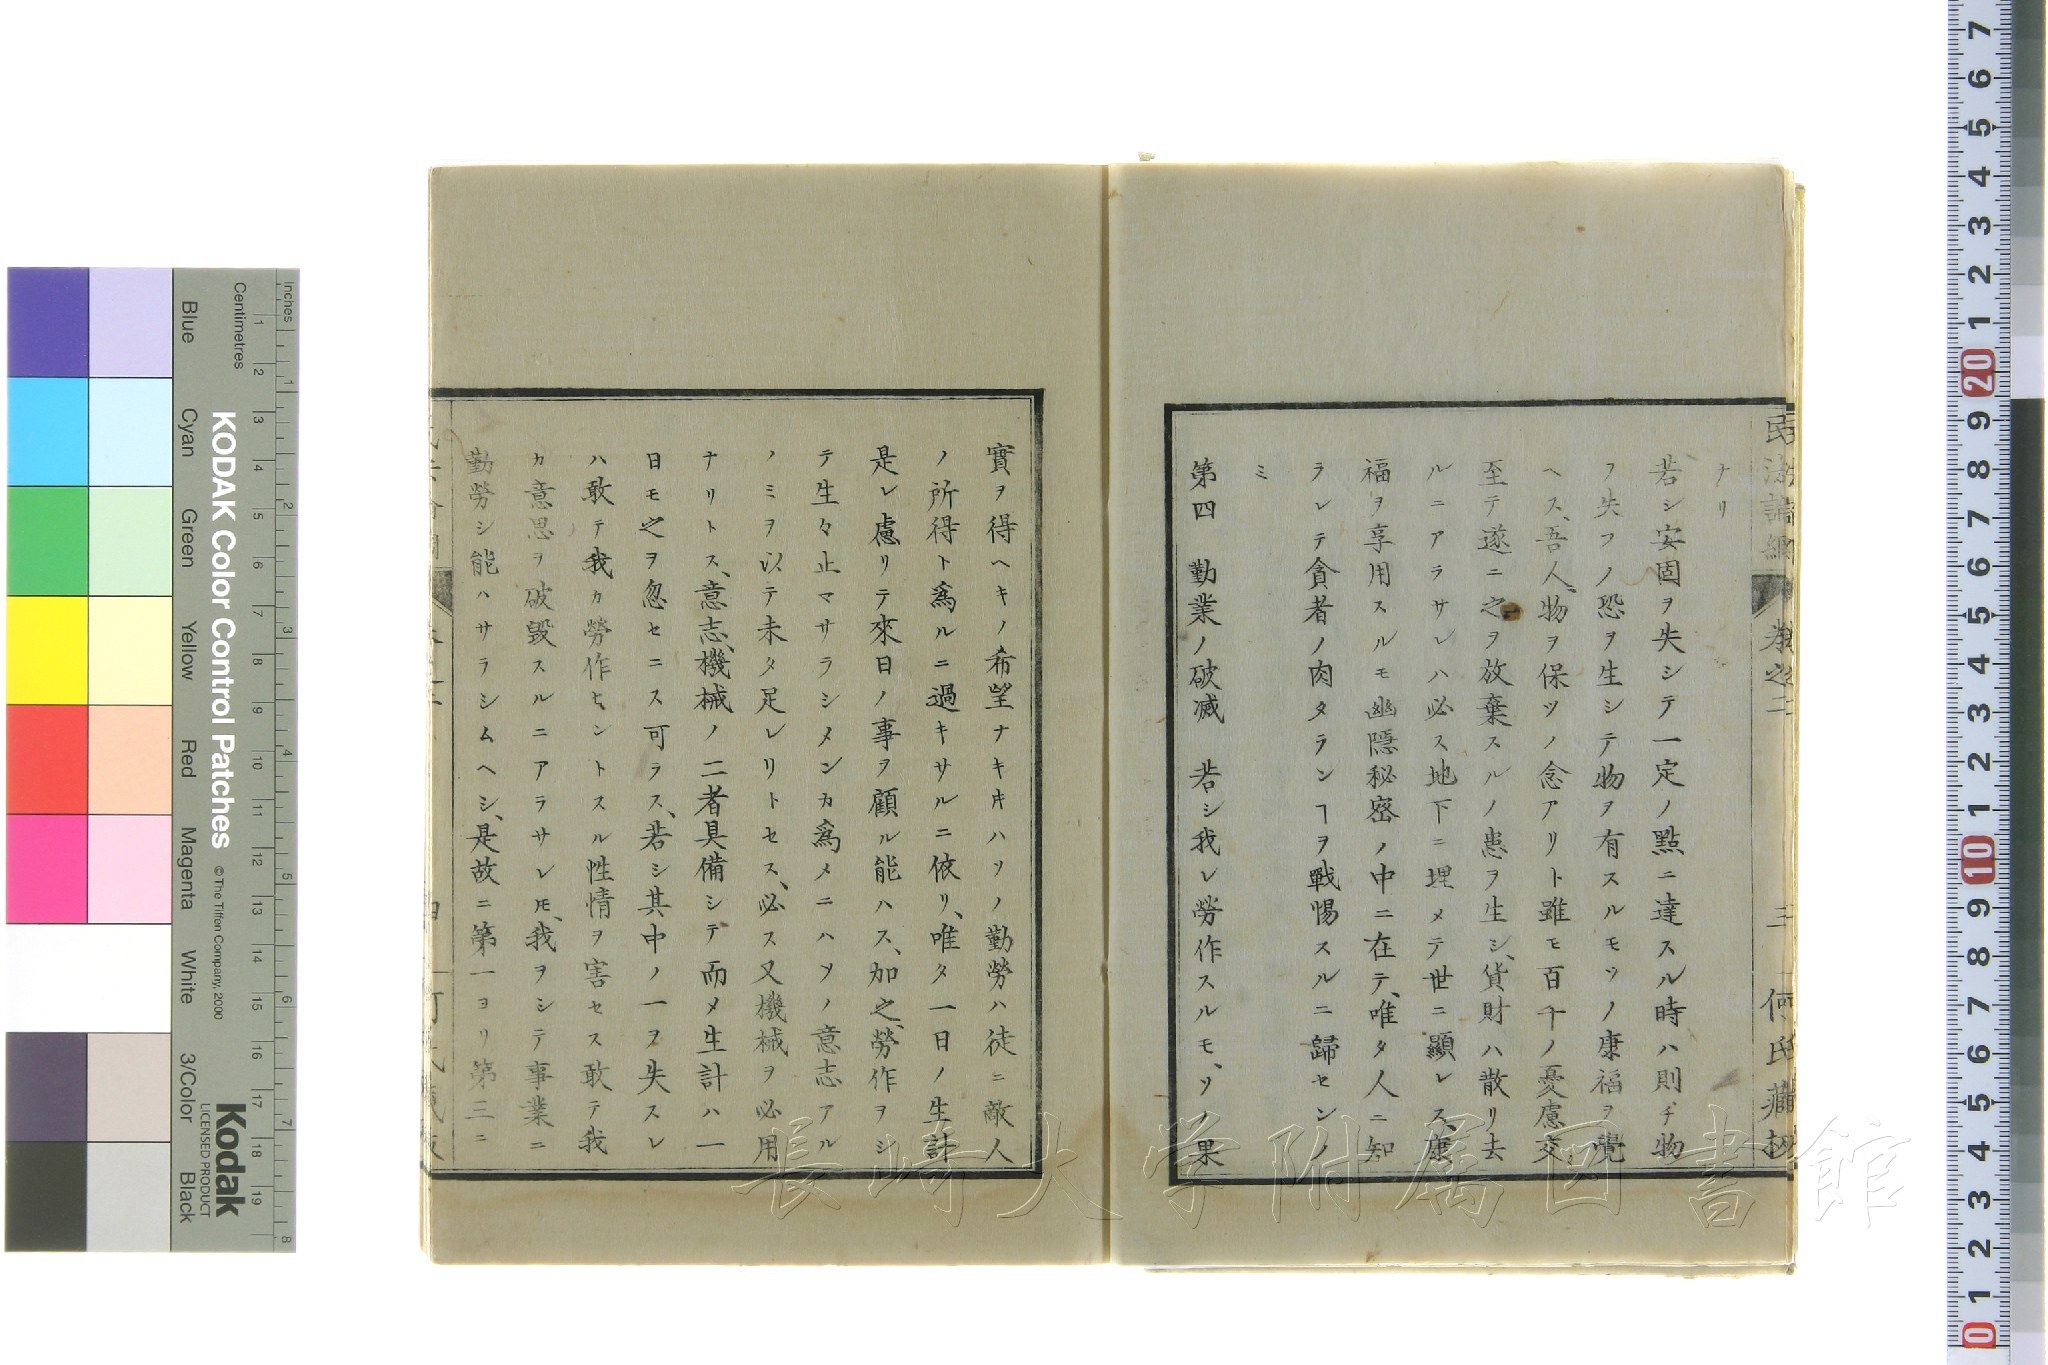 民法論綱 卷之二 三 何氏藏板
ナリ
若シ安固ヲ失シテ一定ノ點ニ達スル時ハ則チ物
フ失フノ恐ヲ生シテ物ヲ有スルモソノ康福ヲ覺
ヘス、吾人、物ヲ保ツノ念アリト雖モ百千ノ憂慮交
至テ遂ニ之ヲ放棄スルノ患ヲ生シ、貨財ハ散リ去
ルニアラサレハ必ス地下ニ埋メテ世ニ顯レス、康
福ヲ享用スルモ幽隱秘密ノ中ニ在テ、唯タ人ニ知
ラレテ貪者ノ肉タランヿヲ戰惕スルニ歸センノ
ミ
第四 勤業ノ破滅 若シ我レ勞作スルモ、ソノ果
實ヲ得ヘキノ希望ナキ𪜈ハソノ勤勞ハ徒ニ敵人
ノ所得ト爲ルニ過キサルニ依リ、唯タ一日ノ生計
是レ慮リテ來日ノ事ヲ顧ル能ハス、加之、勞作ヲシ
テ生々止マサラシメンカ爲メニハソノ意志アル
ノミヲ以テ未タ足レリトセス、必ス又機械ヲ必用
ナリトス、意志、機械ノ二者具備シテ而メ生計ハ一
日モ之ヲ忽セニス可ラス、若シ其中ノ一ヲ失スレ
ハ敢テ我カ勞作セントスル性情ヲ害セス敢テ我
カ意思ヲ破毀スルニアラサレ𪜈、我ヲシテ事業ニ
勤勞シ能ハサラシムヘシ、是故ニ第一ヨリ第三ニ
長崎大学附属図書館
KODAK Color Control Patches
© The Tiffen Company, 2000
Kodak
LICENSED PRODUCT
Inches
Centimetres
Blue
Cyan
Green
Yellow
Red
Magenta
White
3/Color
Black